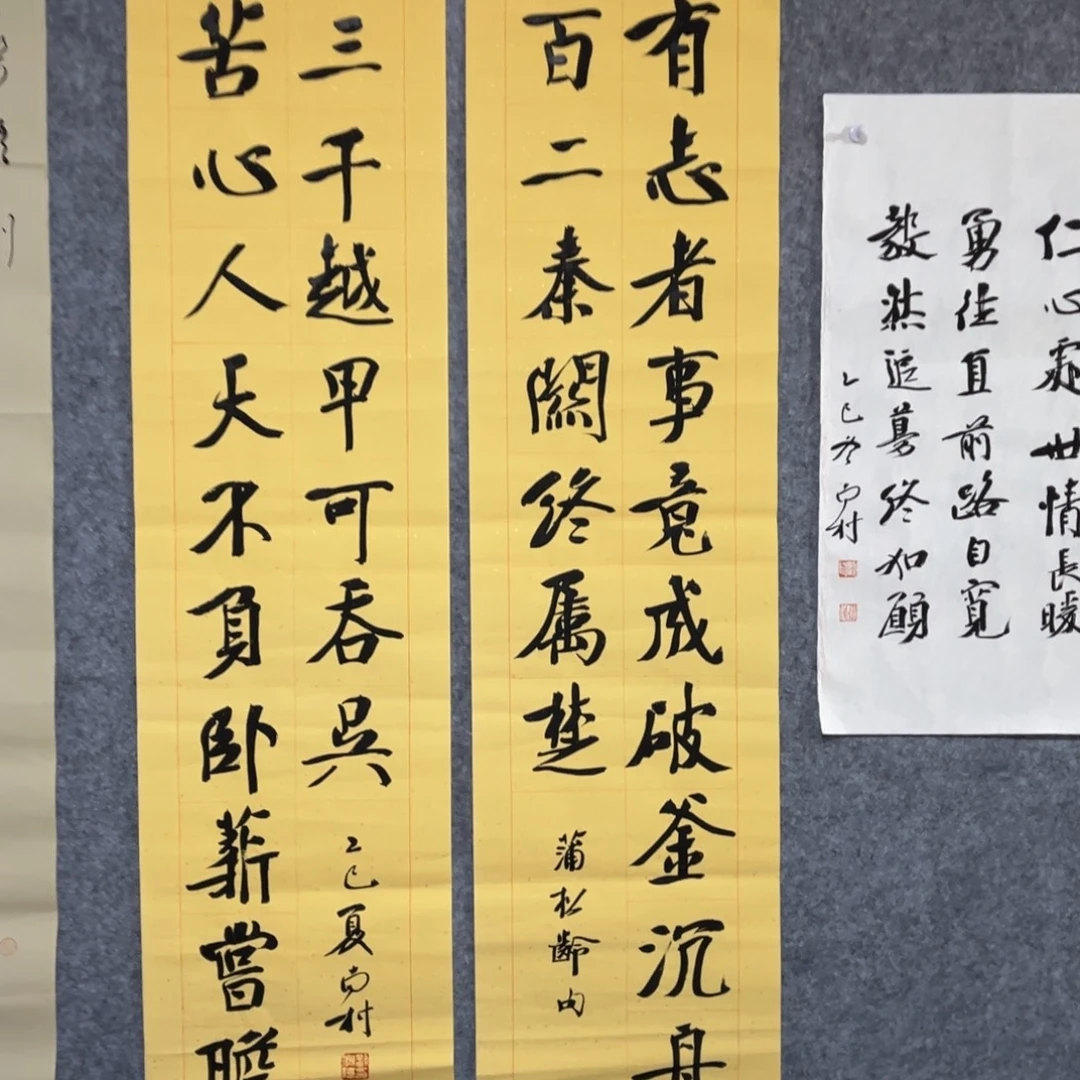 仁心處世情長暖
勇往直前路自寬
毅然追夢終如願
乙巳冬
有志者事竟成破釜沉舟
百二秦關終属楚
蒲松齡句
苦心人天不負卧薪嘗膽
三千越甲可吞吴
乙巳夏